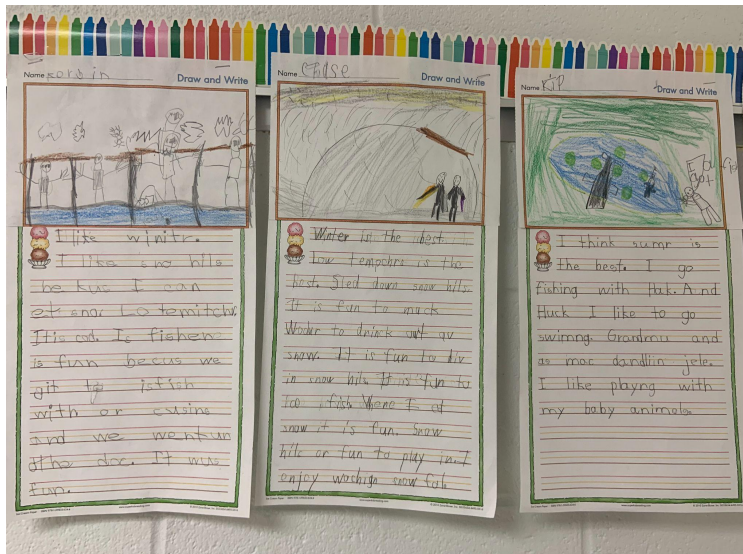 Name
Draw and Write
I like winitr.
I like sno hils
be kus I can
et sno. Lo temitchr
It is cod. Is fishen
is fun becus we
git to isfish
with or cusins
and we went un
othe doc. It wus
fun.
Name Chase
Draw and Write
Winter is the best.
Low tempchre is the
best. Sled down snow hils.
It is fun to mack
Woder to drinck out av
snow. It is fun to div
in snow hils. It is fun to
Ice fish. Whene I et
snow it is fun. Snow
hils or fun to play in. I
enjoy woching snow fal.
Name Kip
Draw and Write
I think sumr is
the best. I go
fishing with Huk. And
Huck I like to go
swimng. Grandmu and
as mac dandliin jele.
I like playng with
my baby animols.